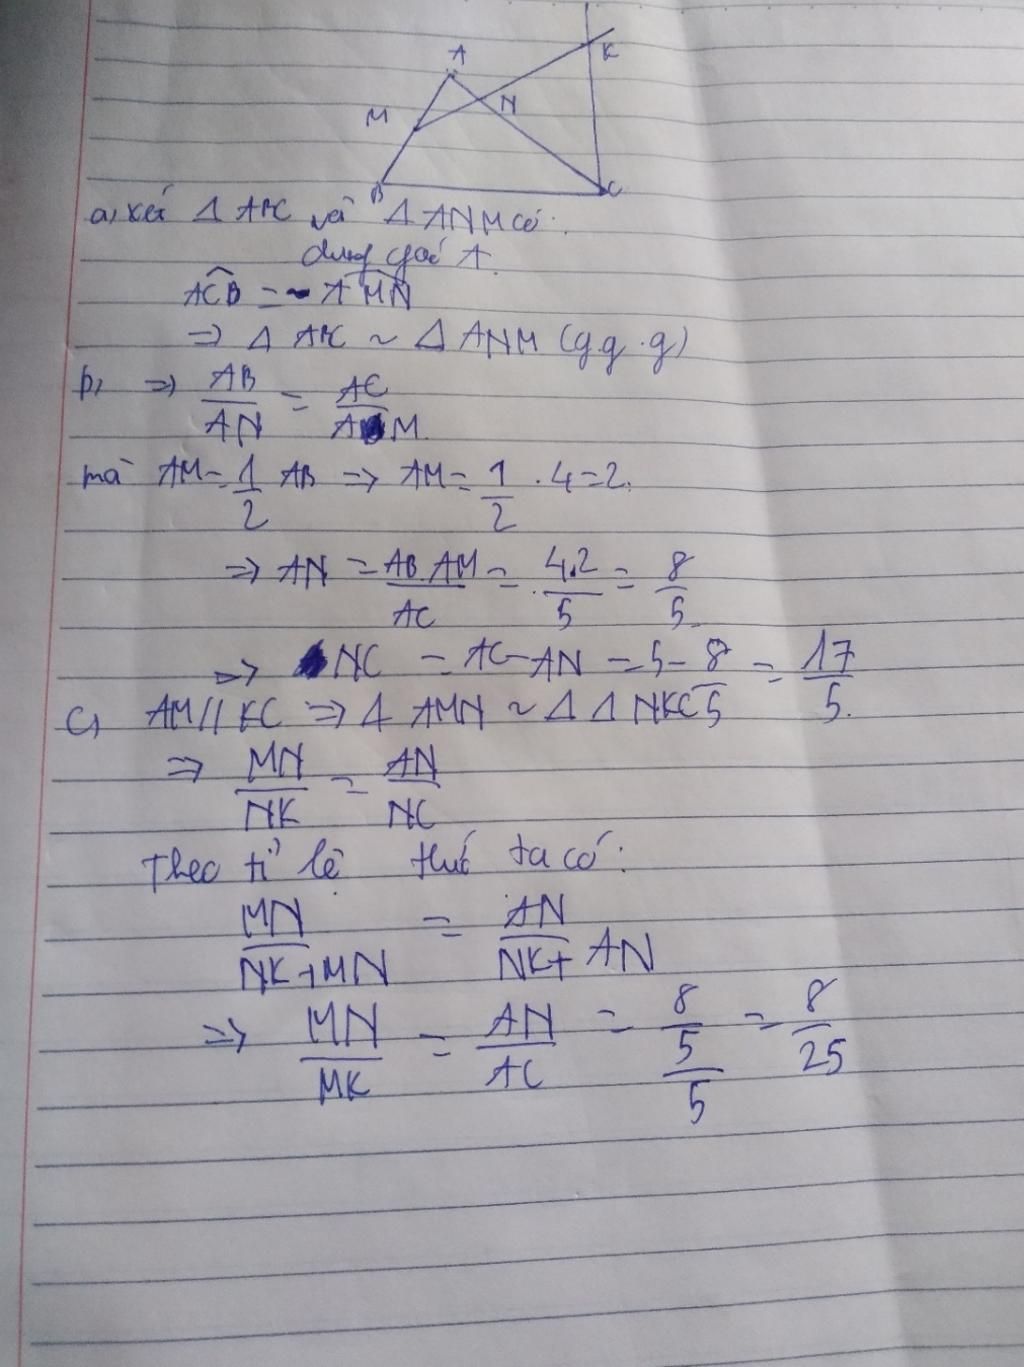 A
K
M
N
B
C
a, xét Δ ABC và Δ ANM có:
chung góc A.
ACB = AMN
=> Δ ABC ~ Δ ANM (g.g.g)
b, => AB/AN = AC/AM
mà AM = 1/2 AB => AM = 1/2 . 4 = 2.
=> AN = AB.AM/AC = 4.2/5 = 8/5.
=> NC = AC - AN = 5 - 8/5 = 17/5.
c, AM // KC => Δ AMN ~ Δ Δ NKC
=> MN/NK = AN/NC
Theo tỉ lệ thức ta có:
MN/NK+MN = AN/NK+AN
=> MN/MK = AN/AC = 8/5/5 = 8/25